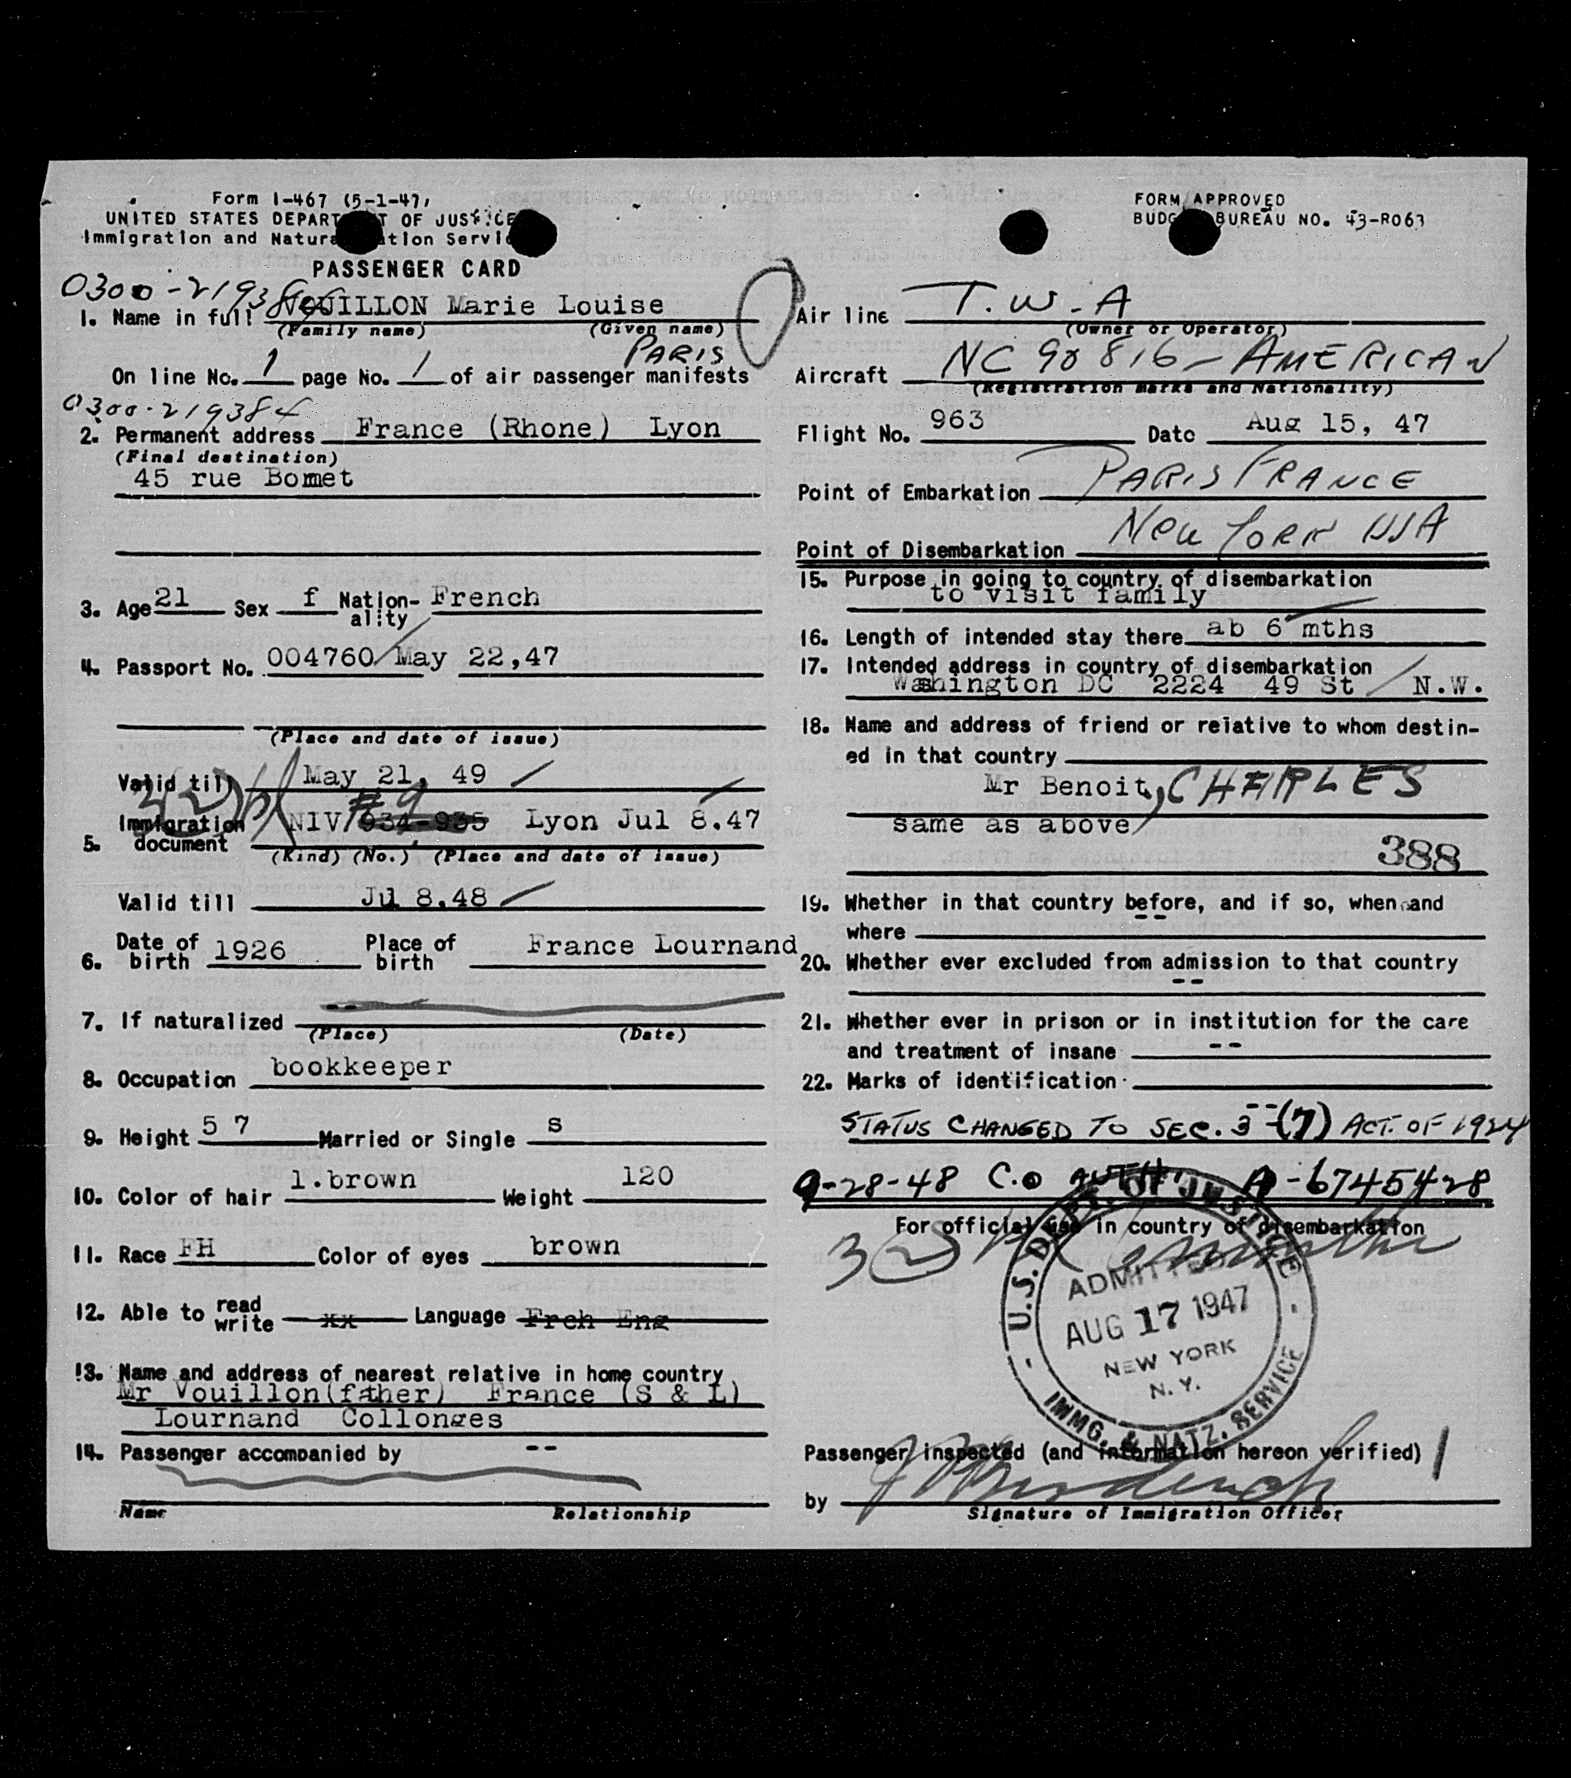 Form I-467 (5-1-47)
UNITED STATES DEPARTMENT OF JUSTICE
Immigration and Naturalization Service
PASSENGER CARD
FORM APPROVED
BUDGET BUREAU NO. 43-R063
0300-219384
1. Name in full VOUILLON Marie Louise
(Family name) (Given name)
PARIS
On line No. 1 page No. 1 of air passenger manifests
0300-219384
2. Permanent address France (Rhone) Lyon
(Final destination)
45 rue Bomet
3. Age 21 Sex f Nationality French
4. Passport No. 004760 May 22,47
(Place and date of issue)
Valid till May 21, 49
5. Immigration document NIV #9 934-935 Lyon Jul 8.47
(Kind) (No.) (Place and date of issue)
Valid till Jul 8.48
6. Date of birth 1926 Place of birth France Lournand
7. If naturalized --
(Place) (Date)
8. Occupation bookkeeper
9. Height 5 7 Married or Single s
10. Color of hair l.brown Weight 120
11. Race FH Color of eyes brown
12. Able to read write xx Language Frch Eng
13. Name and address of nearest relative in home country
Mr Vouillon(father) France (S & L)
Lournand Collonges
14. Passenger accompanied by --
Name Relationship
Air line T.W.A
(Owner or Operator)
Aircraft NC 90816 - AMERICAN
(Registration marks and Nationality)
Flight No. 963 Date Aug 15, 47
Point of Embarkation PARIS FRANCE
Point of Disembarkation New York USA
15. Purpose in going to country of disembarkation
to visit family
16. Length of intended stay there ab 6 mths
17. Intended address in country of disembarkation
Washington DC 2224 49 St N.W.
18. Name and address of friend or relative to whom destin-
ed in that country
Mr Benoit, CHARLES
same as above
388
19. Whether in that country before, and if so, when and
where --
20. Whether ever excluded from admission to that country
--
21. Whether ever in prison or in institution for the care
and treatment of insane --
22. Marks of identification
--
STATUS CHANGED TO SEC. 3-(7) ACT. OF 1924
9-28-48 C.O AUTH. A-6745428
For official use in country of disembarkation
U.S. DEPT. OF JUSTICE
ADMITTED
AUG 17 1947
NEW YORK
N.Y.
IMMG. & NATZ. SERVICE
Passenger inspected (and information hereon verified)
by
Signature of Immigration Officer